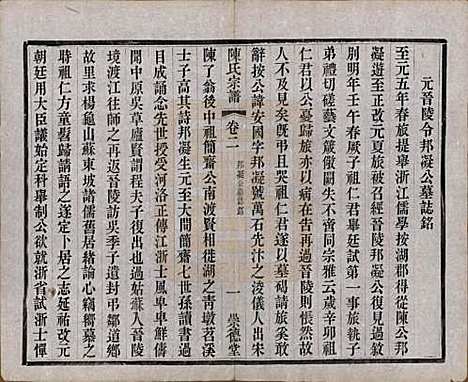 元晉陵令邦凝公墓誌銘
至元五年春旅提舉浙江儒學按湖郡得從陳公邦
凝遊至正改元夏旅被召經晉陵邦凝公復見過
別明年壬午春厥子祖仁君舉廷試第一事旅執子
弟禮切磋藝文箴儆闕失不啻同宗雅云歲辛卯祖
仁君以公憂歸旅亦以病在告再過晉陵則悵悵
人不及見矣旣弔且哭祖仁君遂以墓碣請旅奚敢
辭按公諱安國字邦凝號萬石先汴之浚儀人出宋
陳氏宗譜 卷二 邦凝公墓誌銘 一 崇德堂
陳了翁後中祖簡齋公南渡相徙湖之靑墩苕溪
士子高其詩邦凝生元元間簡齋七世孫頴
目成誦念先世授受河洛正傳江浙士風卑卑鮮儔
閒中原吳草廬賢謁請十年學成歸也過姑蘇人晉陵
境渡江師事之再返晉陵訪吳季子遺封弔鄒道鄉
故里來楊龜山蘇東坡諸儒舊居緖論心竊嚮慕之
時祖仁方童齔歸請語之遂定卜居之志延祐改元
朝廷用大臣議始定科舉制公欲就浙省試浙士憚